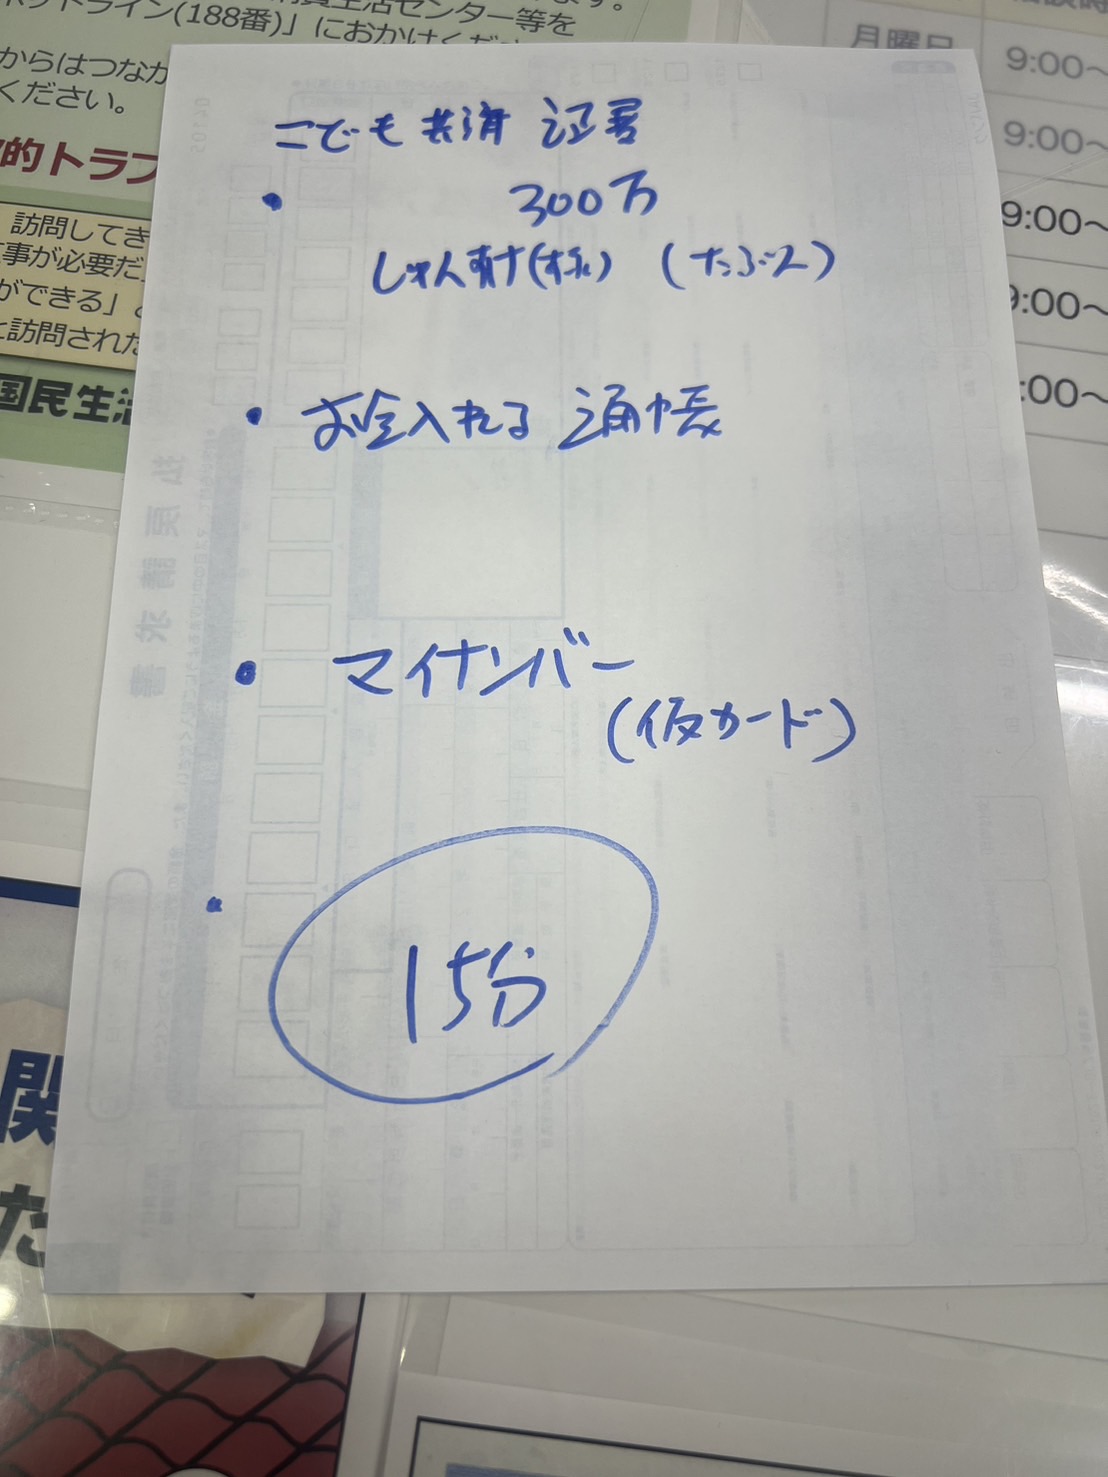 ットライン(188番)」におかけくださ
消費生活センター等を
からはつなが
ください。
的トラブ
訪問してき
事が必要だ
ができる」と
と訪問された
国民生活
月曜日
9:00～
9:00～
9:00～
9:00～
:00～
こども共済 証書
• 300万
(たぶん)
• お金入れる 通帳
• マイナンバー
(仮カード)
• 15分
関
た